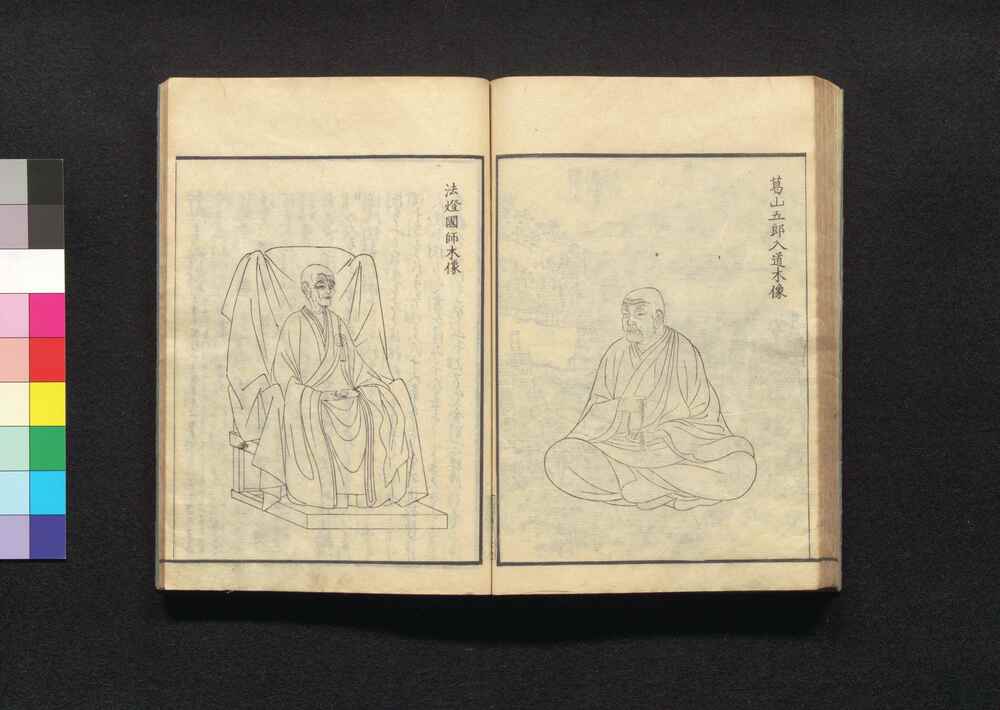 葛山五郎入道木像
法燈國師木像